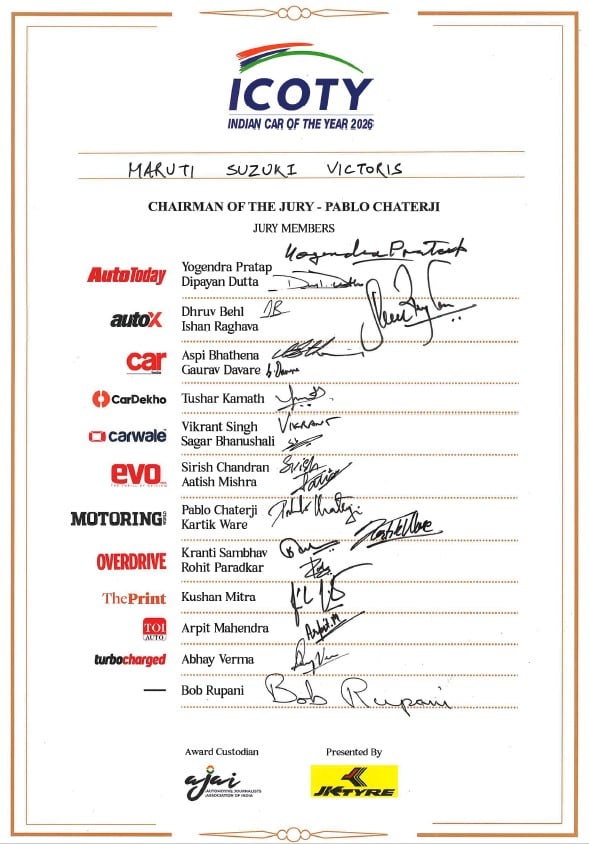 ICOTY
INDIAN CAR OF THE YEAR 2026
MARUTI SUZUKI VICTORIS
CHAIRMAN OF THE JURY - PABLO CHATERJI
JURY MEMBERS
Yogendra Pratap
AutoToday
Yogendra Pratap
Dipayan Dutta
autoX
Dhruv Behl DB
Ishan Raghava
car
Aspi Bhathena
Gaurav Davare
CarDekho
Tushar Kamath
carwale
Vikrant Singh VIKRANT
Sagar Bhanushali
evo
Sirish Chandran Sirish
Aatish Mishra
MOTORING WORLD
Pablo Chaterji Pablo Chaterji
Kartik Ware Kartik Ware
OVERDRIVE
Kranti Sambhav
Rohit Paradkar
ThePrint
Kushan Mitra
TOI AUTO
Arpit Mahendra Arpit.M
turbocharged
Abhay Verma
Bob Rupani Bob Rupani
Award Custodian
Presented By
ajai
AUTOMOTIVE JOURNALISTS
ASSOCIATION OF INDIA
JK TYRE